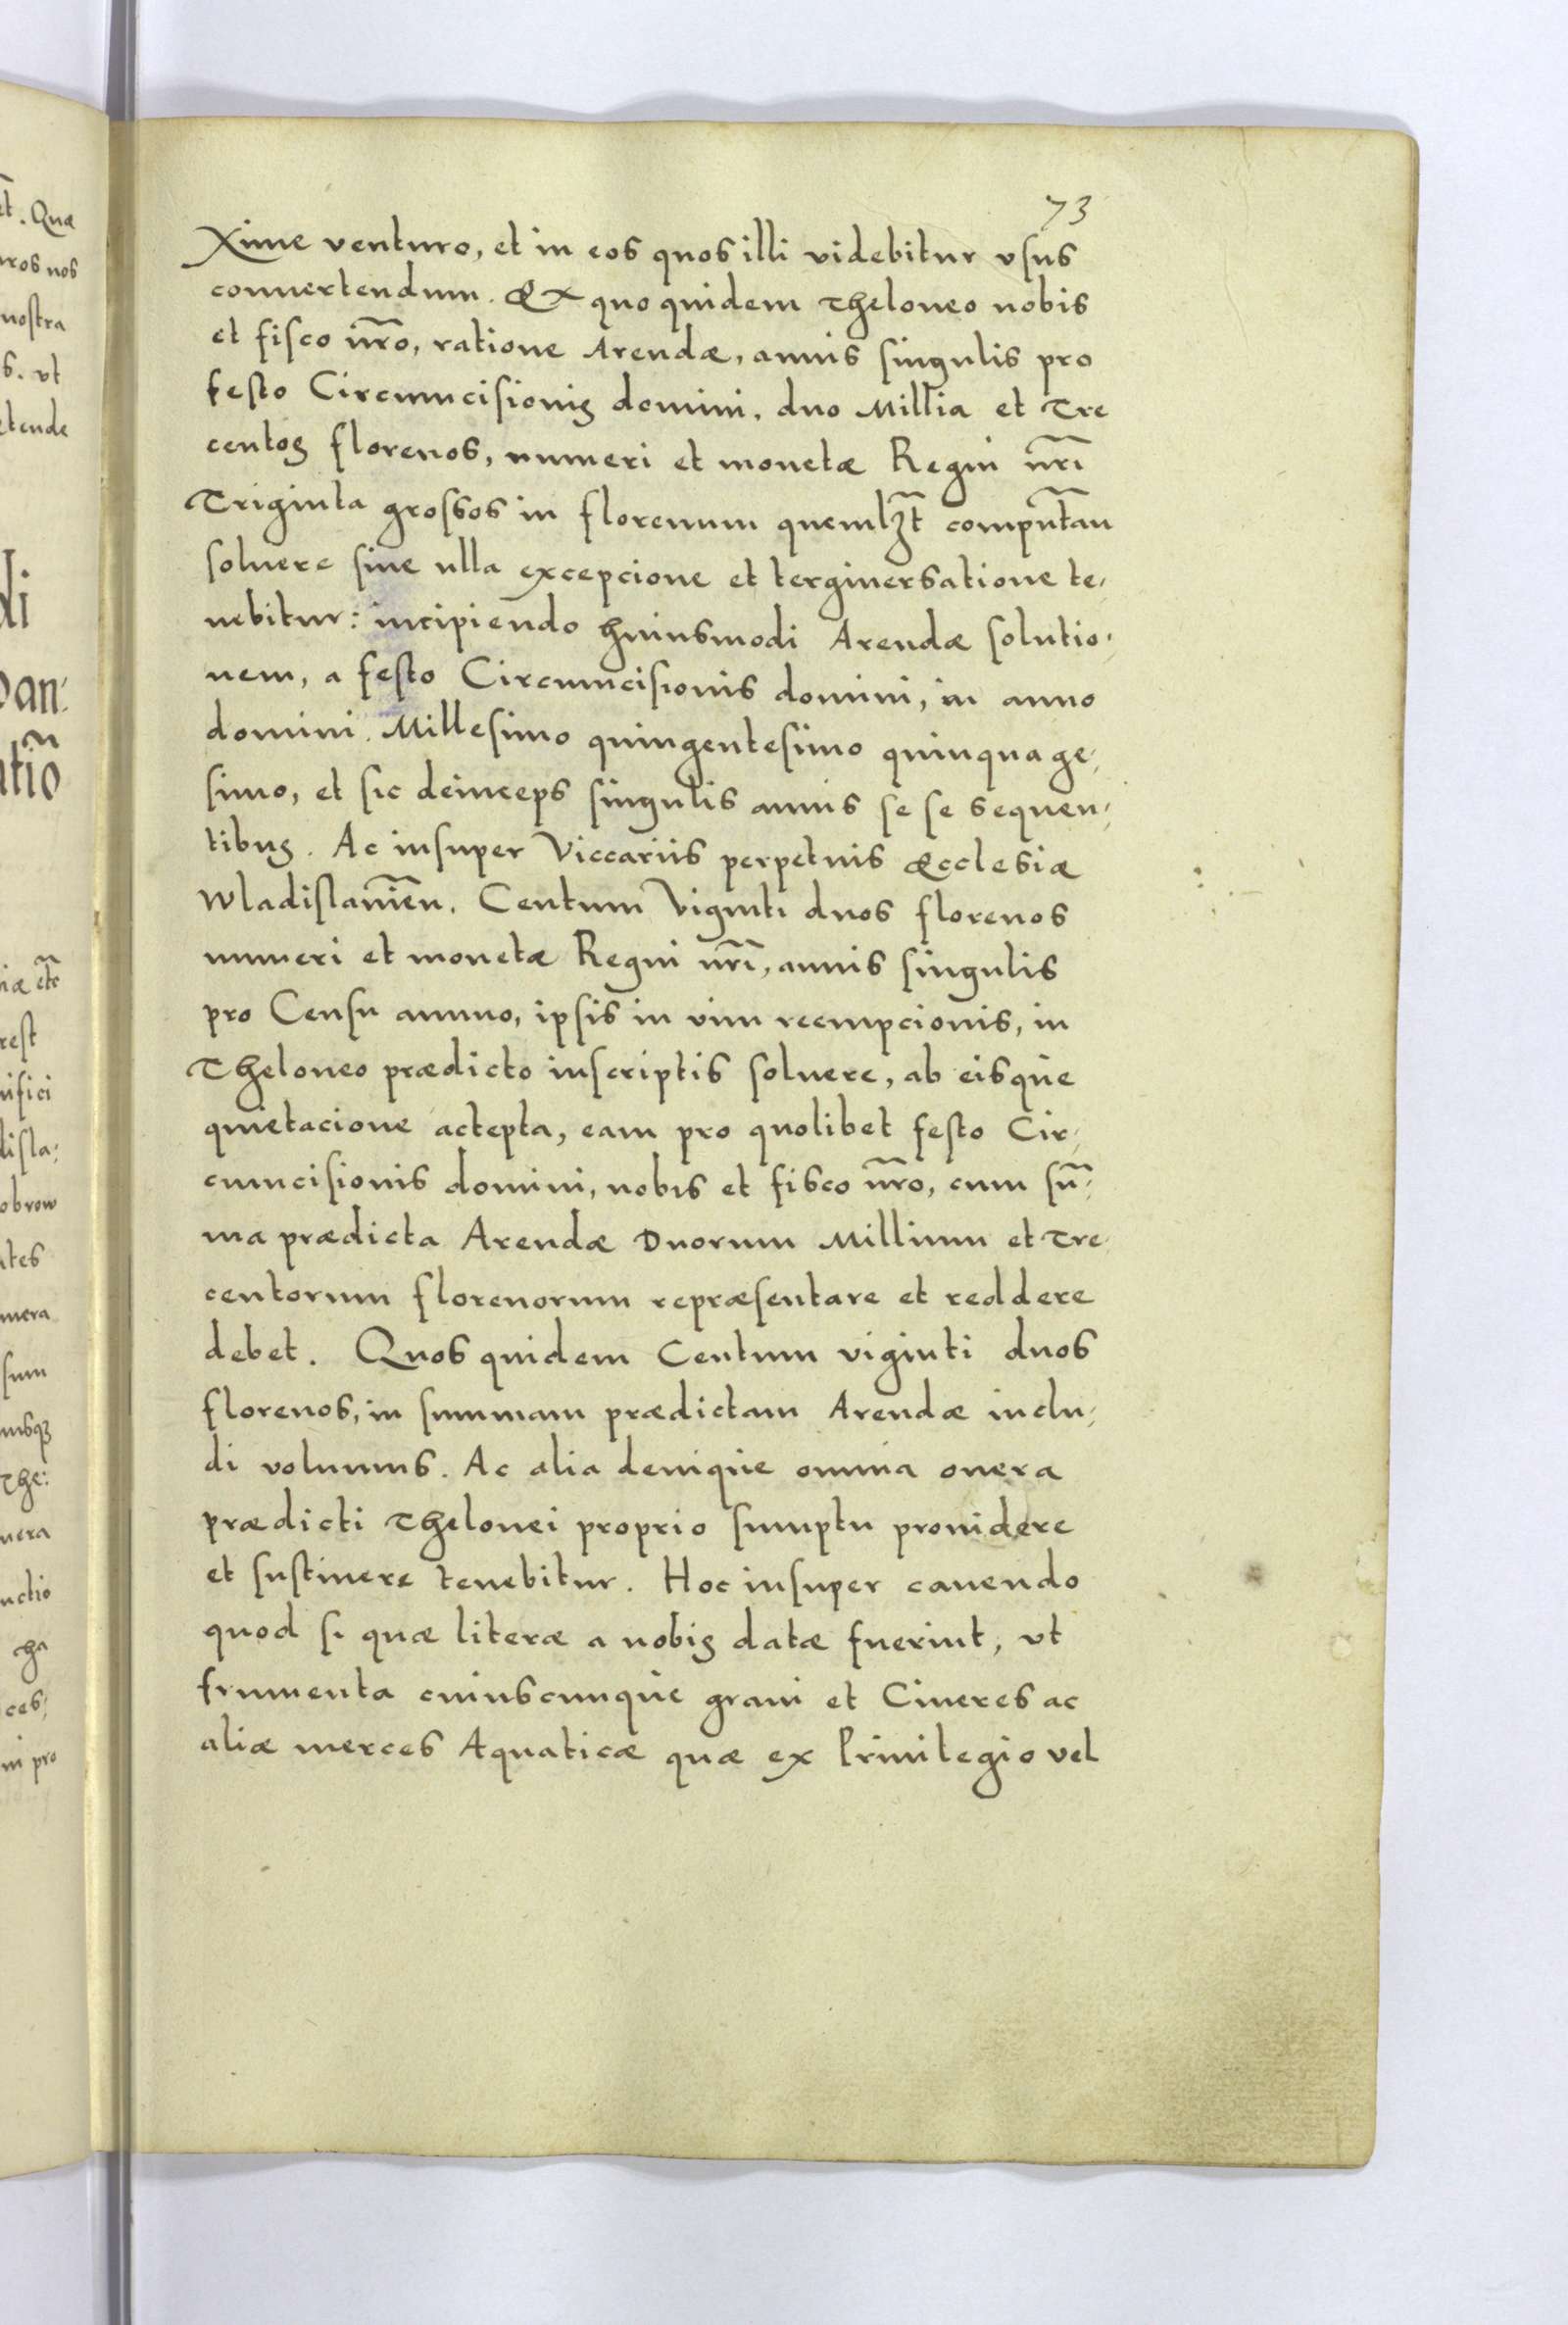 73
Xime venturo, et in eos quos illi videbitur vsus
conuertendum. Ex quo quidem Theloneo nobis
et fisco nr̄o, ratione Arendæ, annis singulis pro
festo Circumcisionis domini, duo Millia et Tre
centos florenos, numeri et monetæ Regni nr̄i
Triginta grossos in florenum quemlꝫt̄ computan̄
soluere sine ulla excepcione et terginersatione te,
nebitur: incipiendo huiusmodi Arendæ solutio,
nem, a festo Circumcisionis domini, in anno
domini. Millesimo quingentesimo quinquage,
simo, et sic deinceps singulis annis se se sequen,
tibus. Ac insuper Viccariis perpetuis Ecclesiæ
Wladislauien̄. Centum Viginti duos florenos
numeri et monetæ Regni nr̄i, annis singulis
pro Censu annuo, ipsis in vim reempcionis, in
Theloneo prædicto inscriptis soluere, ab eisque
quietacione actepta, eam pro quolibet festo Cir,
cumcisionis domini, nobis et fisco nr̄o, cum sū,
ma prædicta Arendæ Duorum Millium et Tre,
centorum florenorum repræsentare et reddere
debet. Quos quidem Centum viginti duos
florenos, in summam prædictam Arendæ inclu,
di volumus. Ac alia denique omnia onera
prædicti Thelonei proprio sumptu prouidere
et sustinere tenebitur. Hoc insuper cauendo
quod si quæ literæ a nobis datæ fuerint, vt
frumenta cuiuscunque grani et Cineres ac
aliæ merces Aquaticæ quæ ex Priuilegio vel